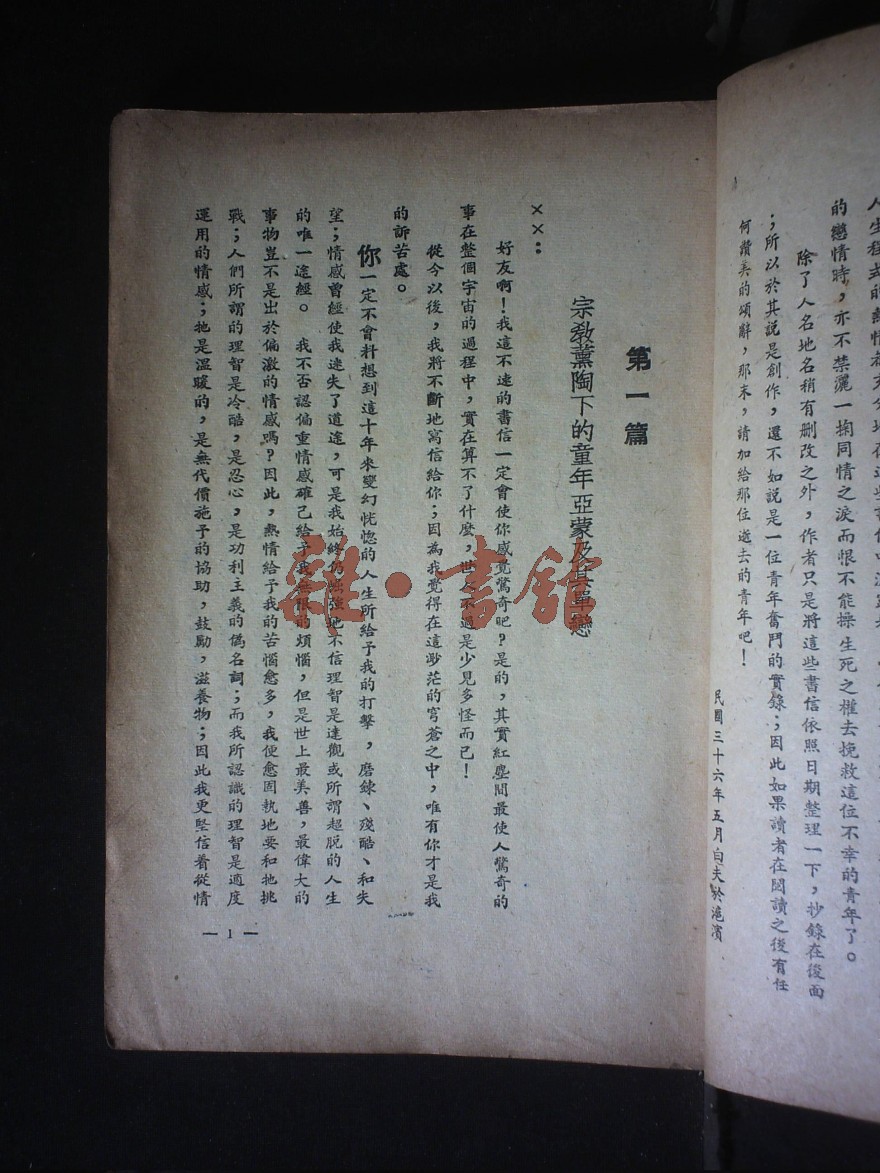 的戀情時，亦不禁灑一掬同情之淚而恨不能操生死之權去挽救這位不幸的青年了。
除了人名地名稍有刪改之外，作者只是將這些書信依照日期整理一下，抄錄在後面
；所以於其説是創作，還不如説是一位青年奮鬥的實錄；因此如果讀者在閱讀之後有任
何讚美的頌辭，那末，請加給那位逝去的青年吧！
民國三十六年五月白夫於滬濱
第一篇
宗教薰陶下的童年 亞蒙及其單戀
××：
好友啊！我這不速的書信一定會使你感覺驚奇吧？是的，其實紅塵間最使人驚奇的
事在整個宇宙的過程中，實在算不了什麼，世人不過是少見多怪而已！
從今以後，我將不斷地寫信給你；因為我覺得在這渺茫的穹蒼之中，唯有你才是我
的訴苦處。
你一定不會料想到這十年來變幻恍惚的人生所給予我的打擊，磨鍊、殘酷、和失
望；情感曾經使我迷失了道途，可是我始終仍強地不信理智是達觀或所謂超脱的人生
的唯一途經。 我不否認偏重情感確已給予我無限的煩惱，但是世上最美善，最偉大的
事物豈不是出於偏激的情感嗎？因此，熱情給予我的苦惱愈多，我便愈固執地要和牠挑
戰；人們所謂的理智是冷酷，是忍心，是功利主義的偽名詞；而我所認識的理智是適度
運用的情感；牠是溫暖的，是無代價施予的協助，鼓勵，滋養物；因此我更堅信着從情
— 1 —
雜·書館